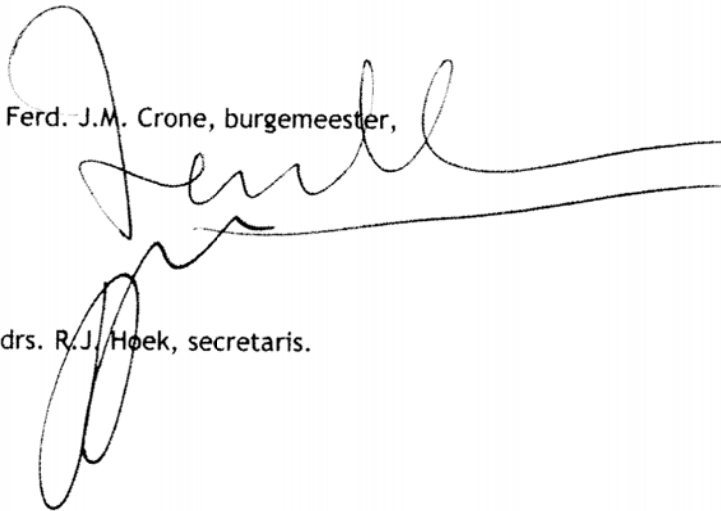 Ferd. J.M. Crone, burgemeester,
drs. R.J. Hoek, secretaris.